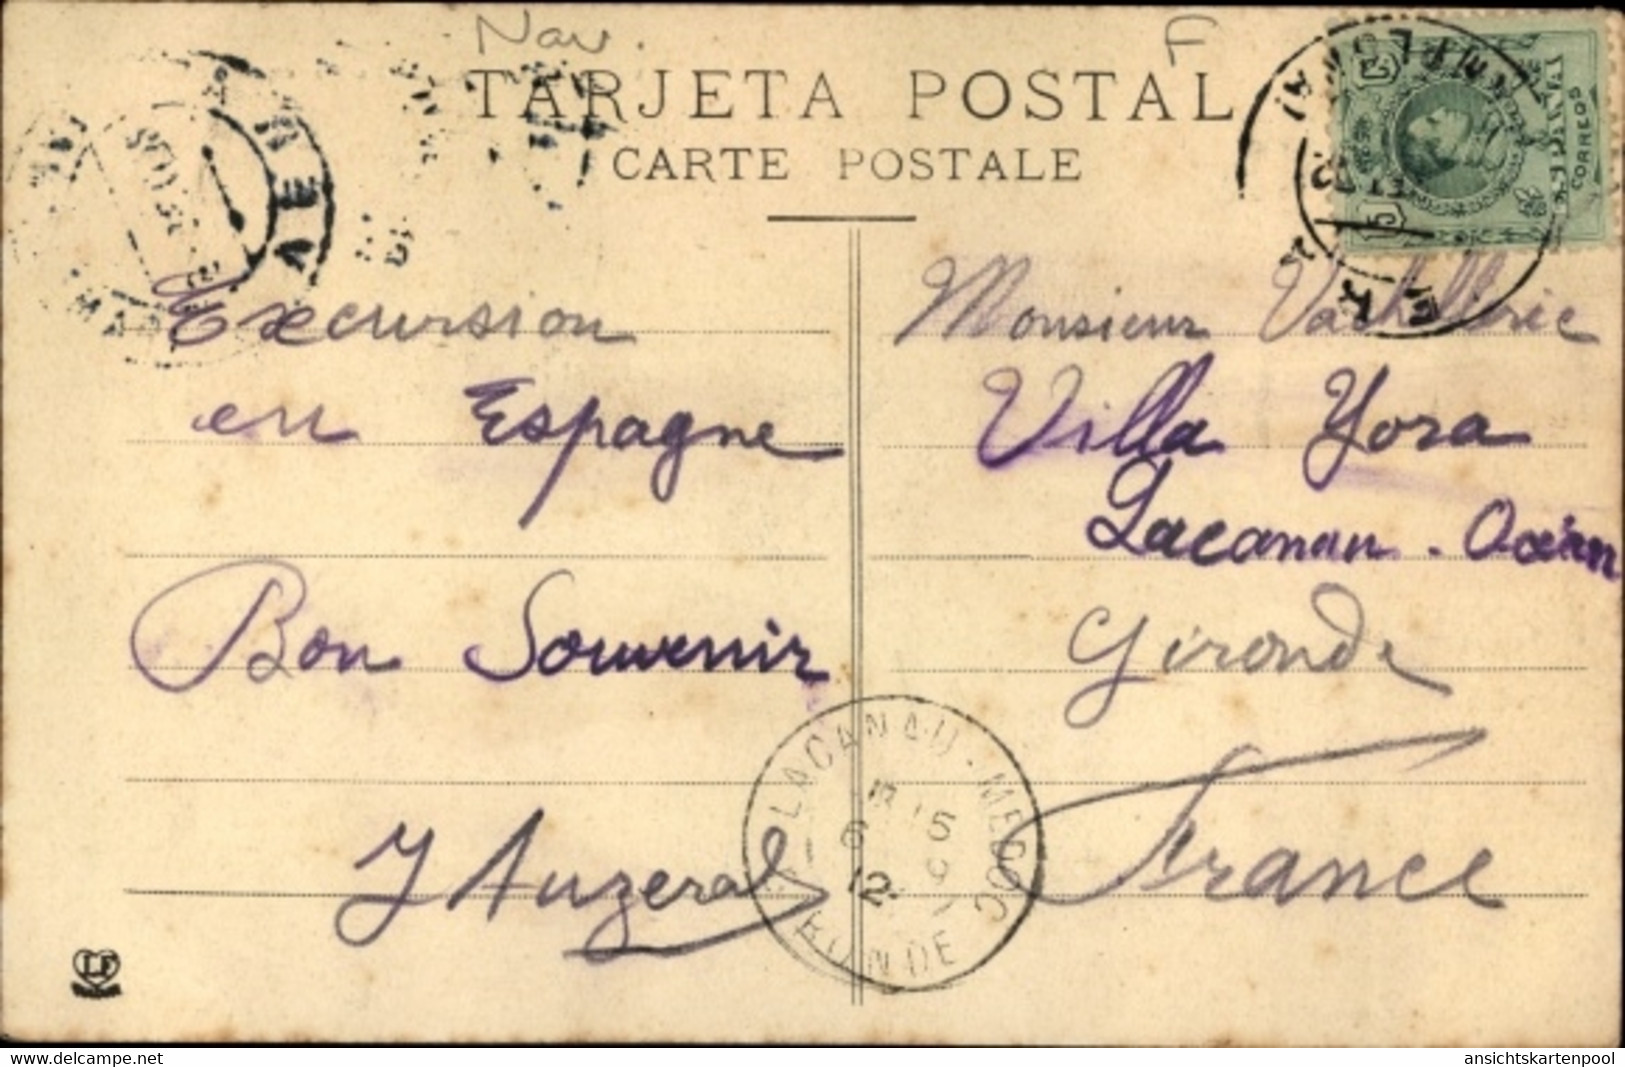 Nav. F
TARJETA POSTAL
CARTE POSTALE
CORREOS
Excursion
en Espagne
Bon Souvenir
J Auzeral
Monsieur
Villa Yora
Lacanau - Océan
Gironde
France
LACANAU-MEDOC
15
6 9
12
LF
www.delcampe.net
ansichtskartenpool